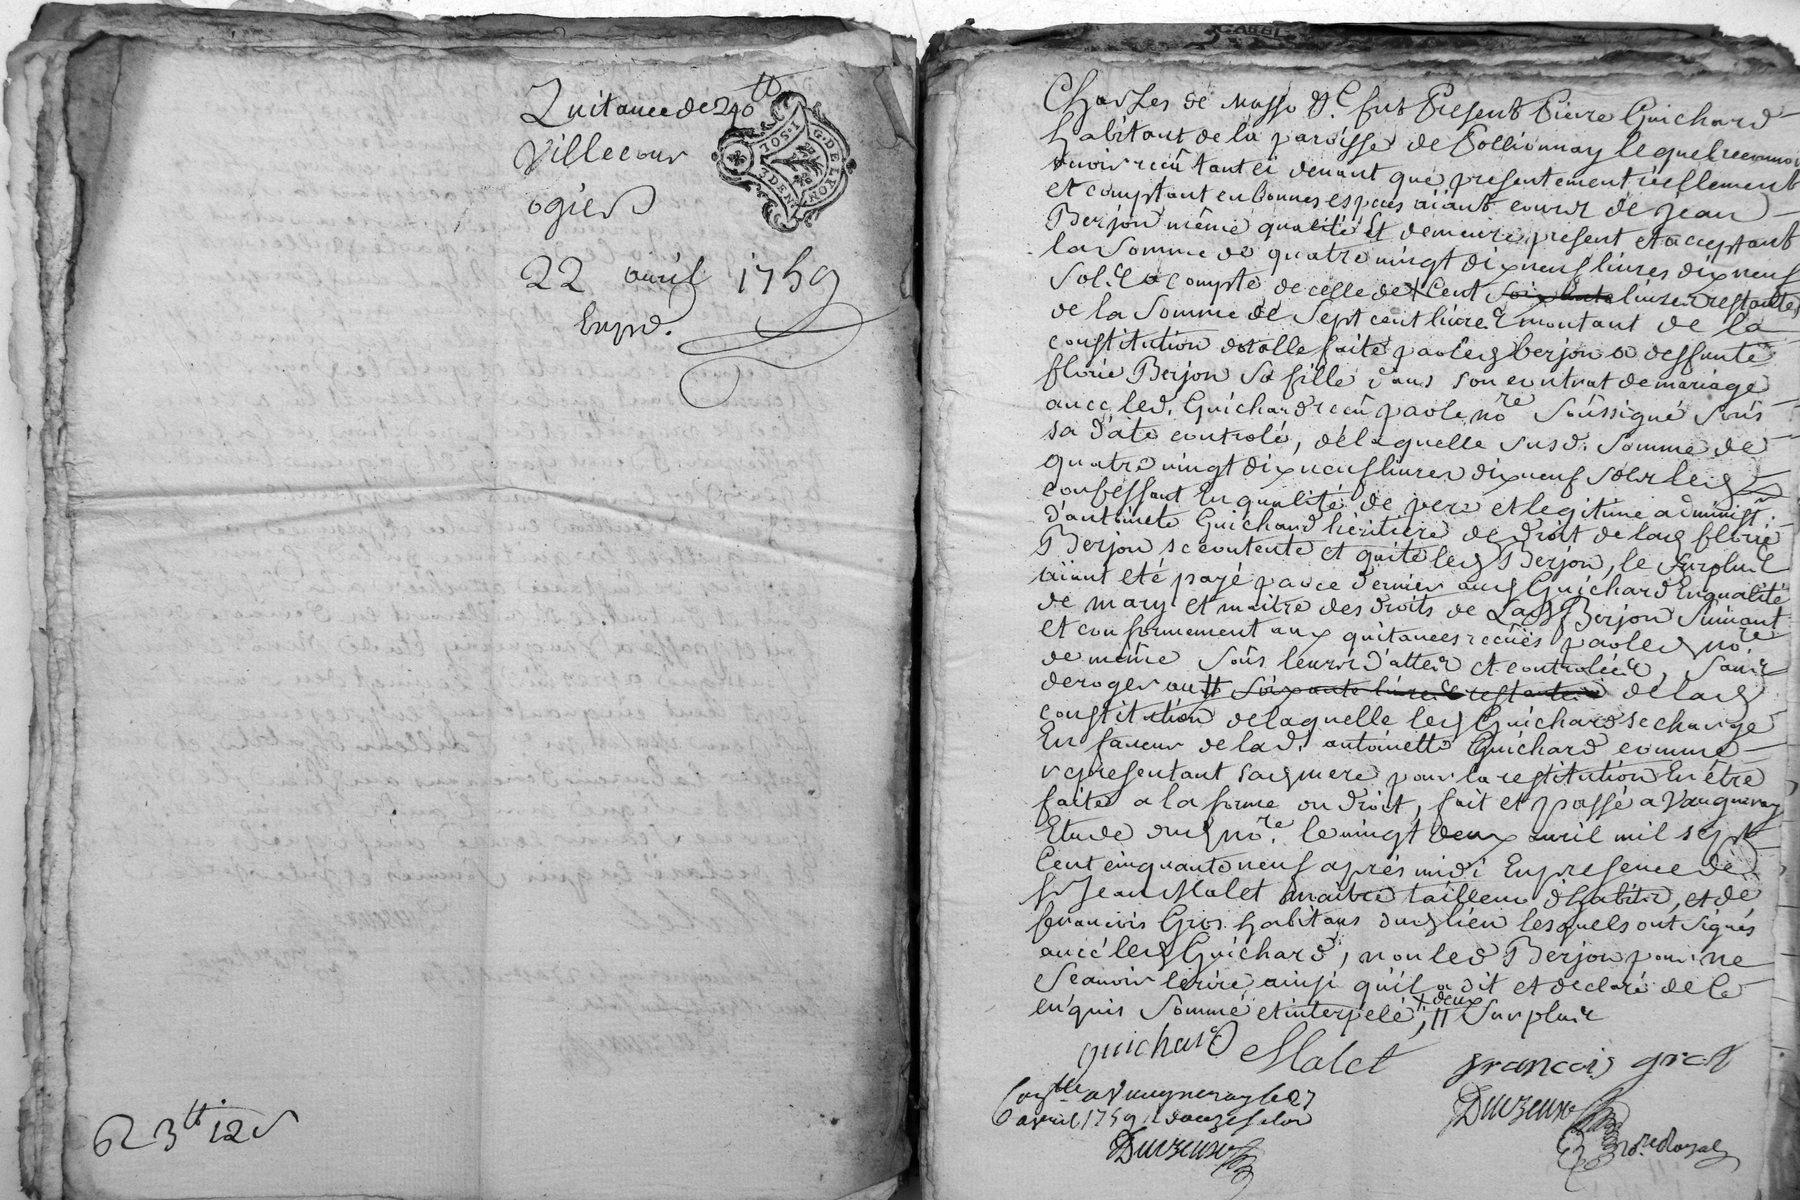 Quitance de 240 ₶
Villecour
ogier
22 avril 1759
Exped.
1·SOL
3·DEN
G·DE LYON
3 ₶ 12 s
Charles de Masso &c. fut Present Pierre Guichard
habitant de la paroisse de Pollionnay lequel reconnoit
avoir reçû tant ci devant que presentement réellement
et comptant en bonnes espèces aiant cours de Jean
Berjon même qualité et demeure present et acceptant
la somme de quatre vingt dix neuf livres dix neuf
sols a compte de celle de + Cent soixante livres restantes
de la somme de Sept cent livres montant de la
constitution dotalle faite par led Berjon a deffunte
florie Berjon sa fille dans son contrat de mariage
avec led. Guichard reçu par le nore soussigné sous
sa date controlé, de laquelle susd. somme de
quatre vingt dix neuf livres dix neuf sols led
confessant En qualité de pere et legitime administ.
d'antoinete Guichard héritiere de droit de lad florie
Berjon se contente et quite led Berjon, le surplus
aiant eté payé par ce dernier aud Guichard En qualité
de mary et maitre des droits de Lad Berjon suivant
et conformement aux quitances reçües par led nore
de même sous leurs dattes et controlées, sans
deroger au # soixante livres restantes de lad
constitution de laquelle led Guichard se charge
En faveur de lad. antoinette Guichard comme
representant sad mere pour la restitution En être
faite a la forme du droit, fait et passé a Vaugneray
Etude dud nore. le vingt deux avril mil sept
Cent cinquante neuf après midi En presence de
sr Jean Malet maitre tailleur d'habits, et de
francois Gros habitans dud lieu lesquels ont signés
avec led Guichard, non led Berjon pour ne
sçavoir écrire ainsi qu'il a dit et declaré de ce
enquis sommé et interpelé, + deux # surplus
guichard Malet francois gros
Con.lle a Vaugneray le 27
avril 1759 douze sols
Duzeuse
Duzeuse
no.re Royal